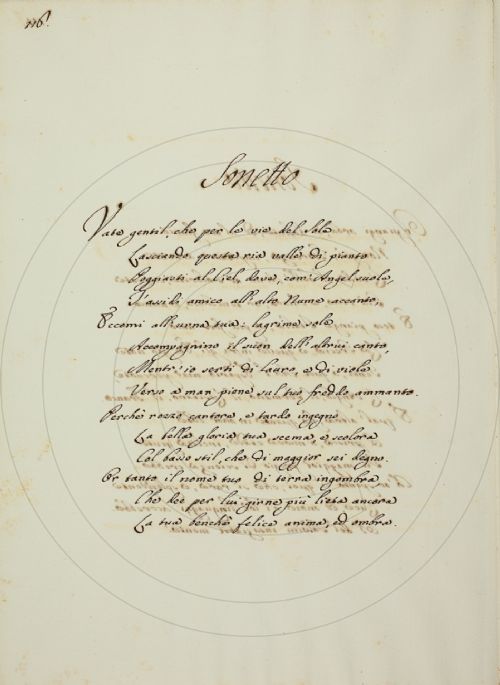 116.
Sonetto
Vate gentil, che per le vie del Sole
Lasciando questa ria valle di pianto
Poggiasti al Ciel, dove, com' Angel suole,
T'assidi amico all' alto Nume accanto,
Eccomi all' urna tua: lagrime sole
Accompagnino il suon dell' altrui canto,
Mentr' io serti di lauro, e di viole
Verso a man piene sul tuo freddo ammanto.
Perchè rozzo cantore, e tardo ingegno
La bella gloria tua scema, e scolora
Col basso stil, che di maggior sei degno.
Or tanto il nome tuo di terra ingombra
Che dee per lui girne più lieta ancora
La tua benchè felice anima, ed ombra.